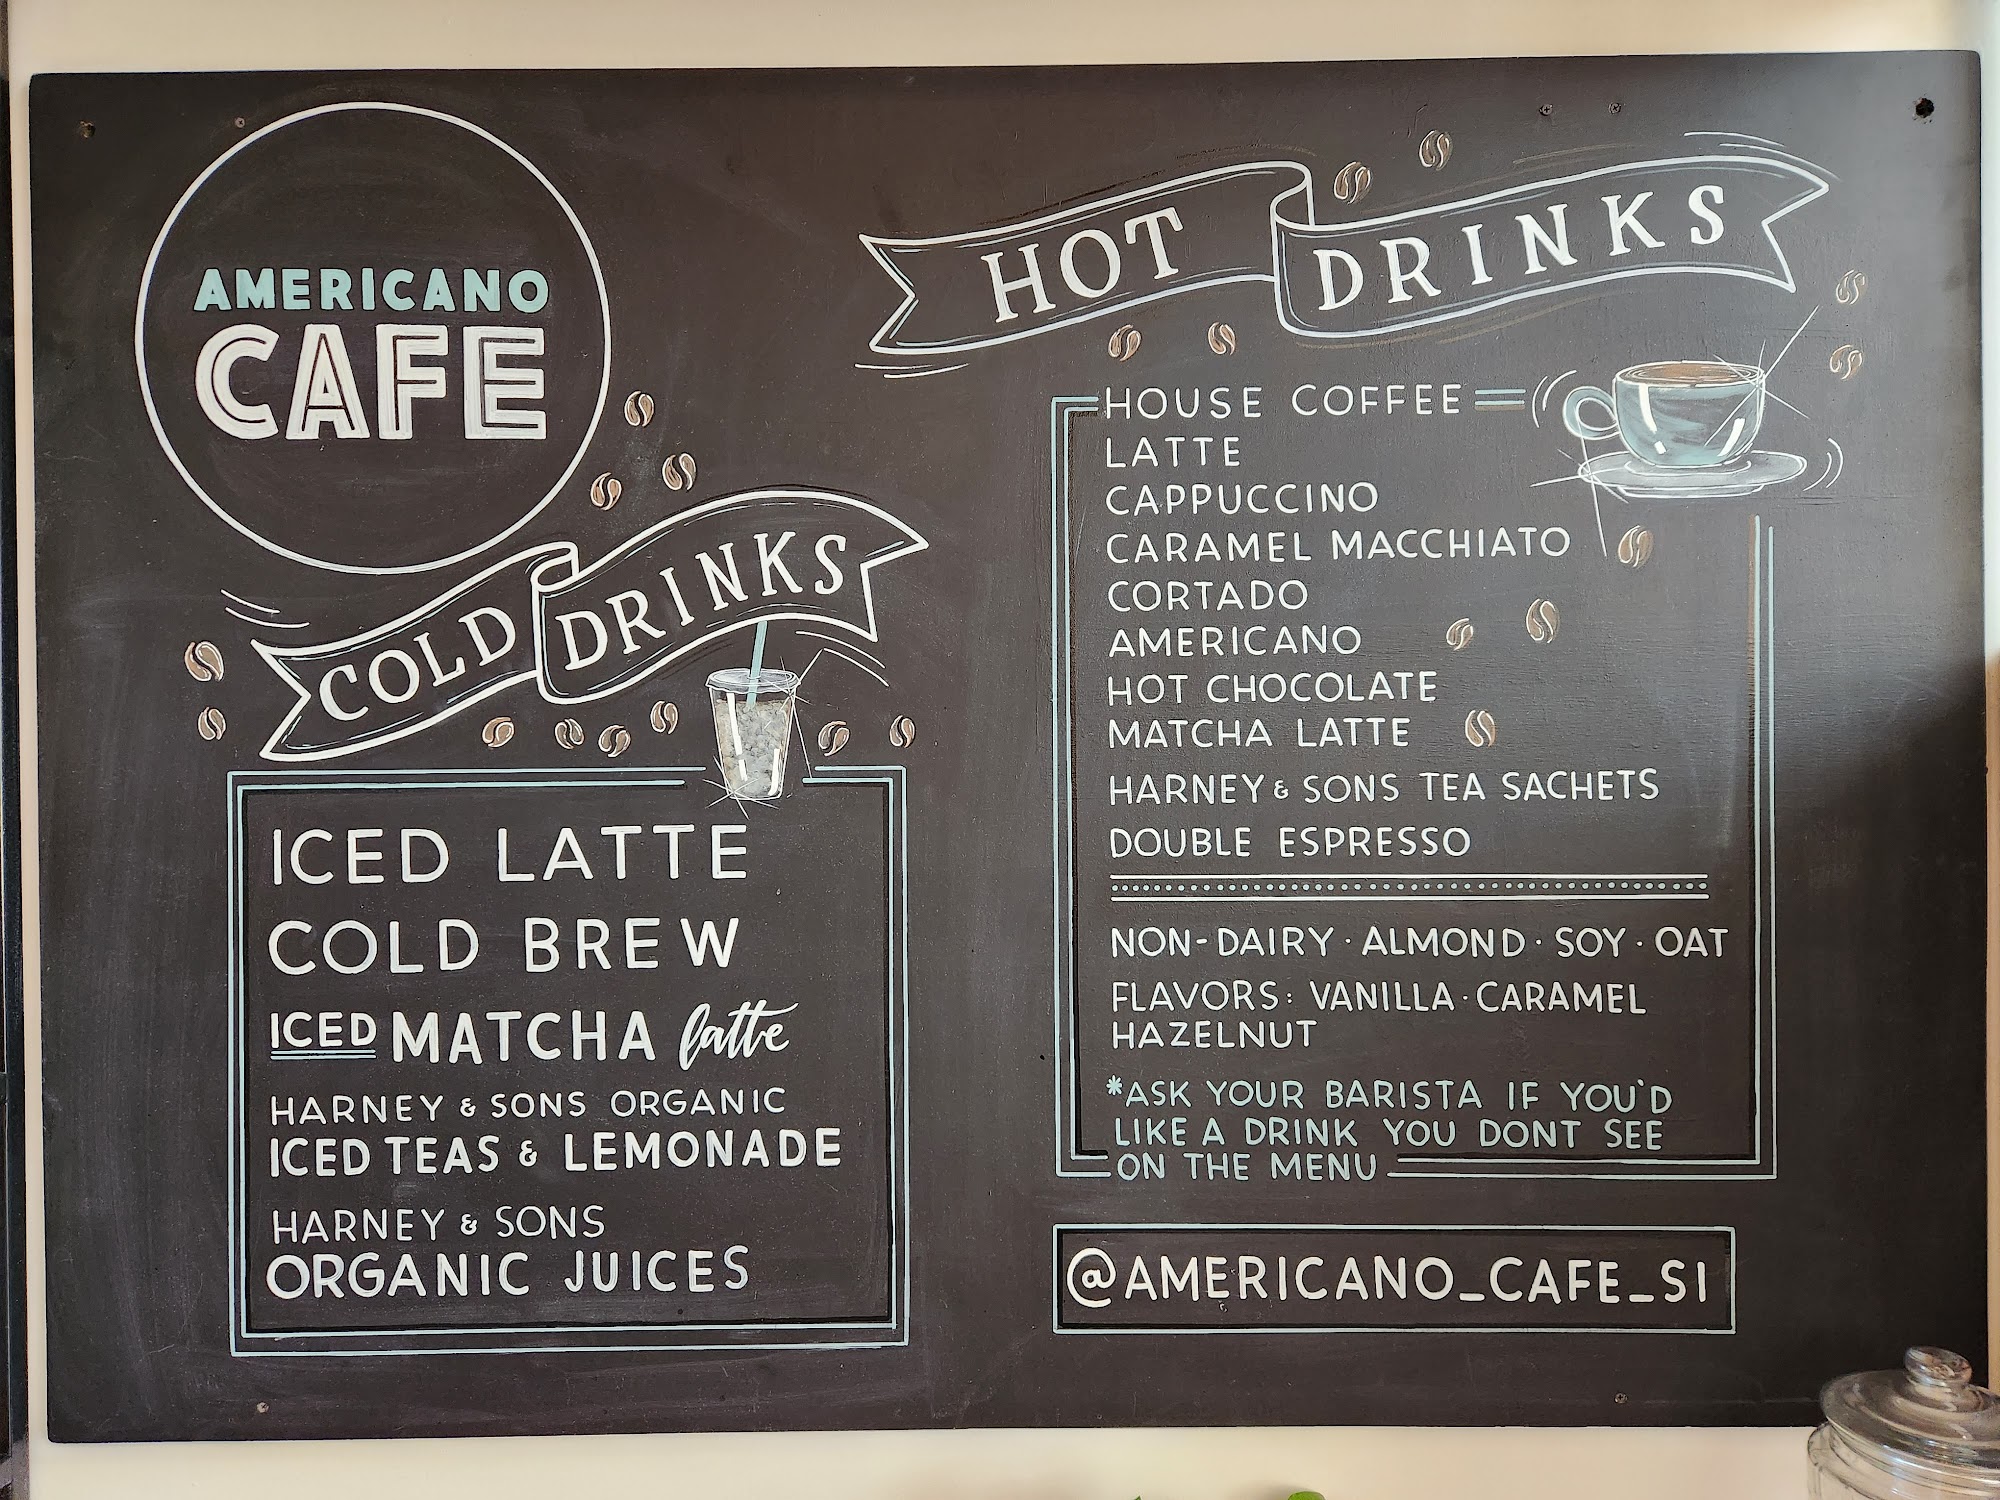 AMERICANO
CAFE
COLD DRINKS
ICED LATTE
COLD BREW
ICED MATCHA latte
HARNEY & SONS ORGANIC
ICED TEAS & LEMONADE
HARNEY & SONS
ORGANIC JUICES
HOT DRINKS
HOUSE COFFEE
LATTE
CAPPUCCINO
CARAMEL MACCHIATO
CORTADO
AMERICANO
HOT CHOCOLATE
MATCHA LATTE
HARNEY & SONS TEA SACHETS
DOUBLE ESPRESSO
NON-DAIRY · ALMOND · SOY · OAT
FLAVORS: VANILLA · CARAMEL
HAZELNUT
*ASK YOUR BARISTA IF YOU'D
LIKE A DRINK YOU DONT SEE
ON THE MENU
@AMERICANO_CAFE_SI